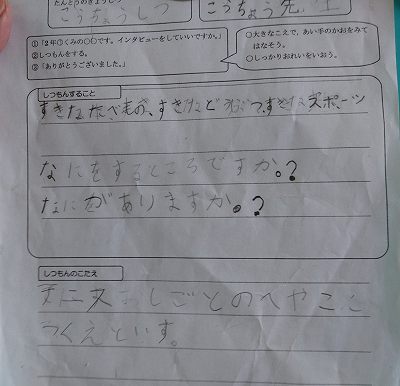 たんとうのきょうしつ
こうちょうしつ
こうちょう先生
①「2年①くみの○○です。インタビューをしていいですか。」
②しつもんをする。
③「ありがとうございました。」
○大きなこえで、あい手のかおをみて
はなそう。
○しっかりおれいをいおう。
しつもんすること
すきなたべもの、すきなどうぶつ、すきなスポーツ
なにをするところですか。?
なにがありますか。?
しつもんのこたえ
おしごとのへや
つくえといす。